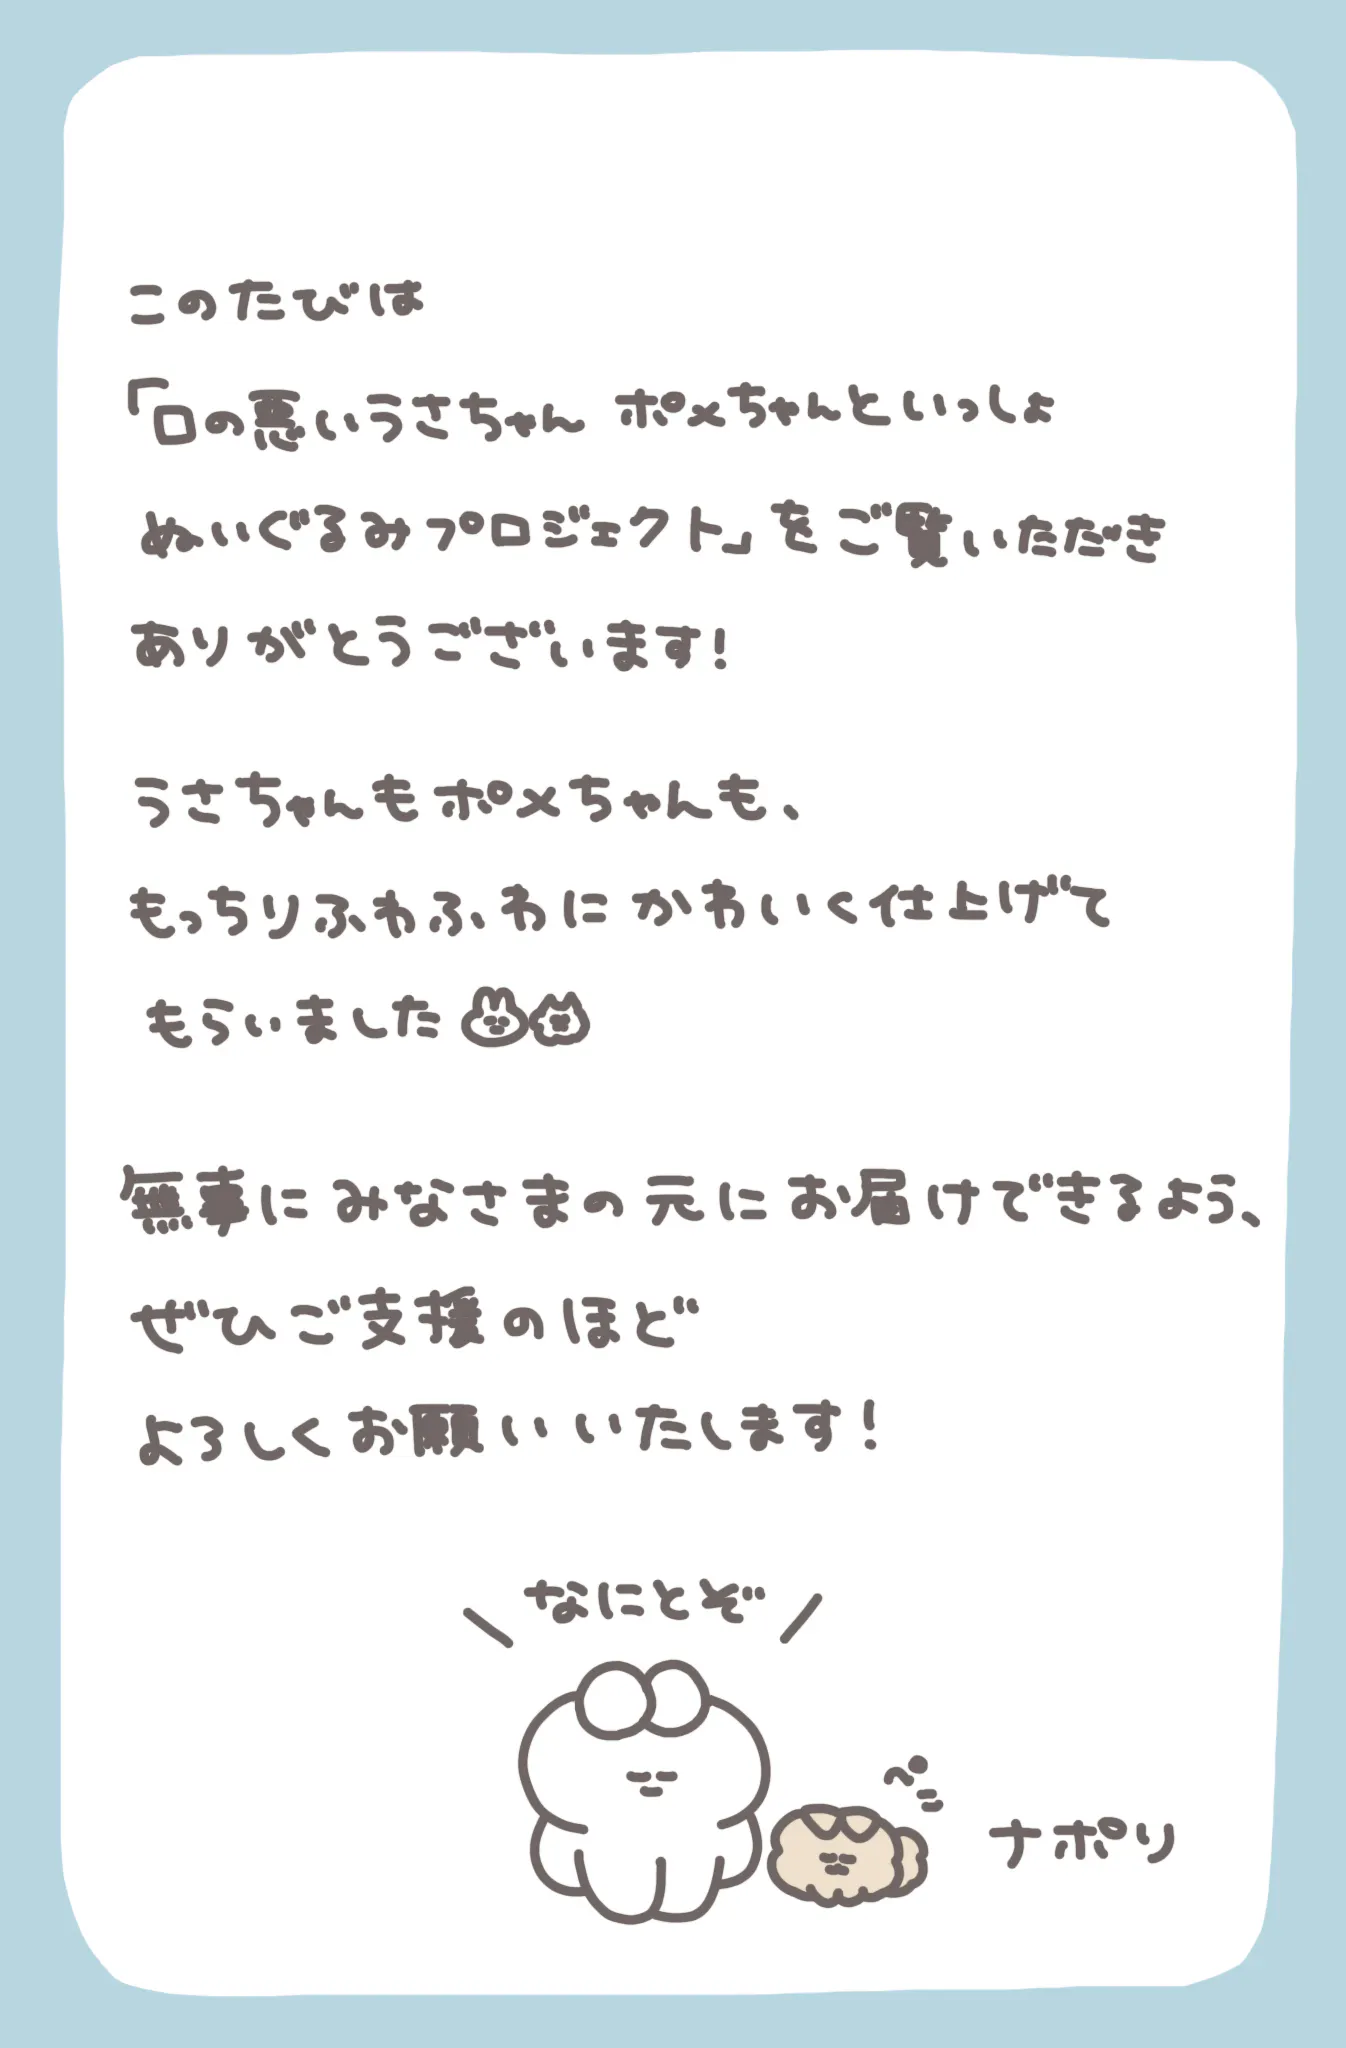 このたびは
「口の悪いうさちゃん ポメちゃんといっしょ
ぬいぐるみプロジェクト」をご覧いただき
ありがとうございます!
うさちゃんもポメちゃんも、
もっちりふわふわにかわいく仕上げて
もらいました
無事にみなさまの元にお届けできるよう、
ぜひご支援のほど
よろしくお願いいたします!
\ なにとぞ /
ペこ
ナポリ